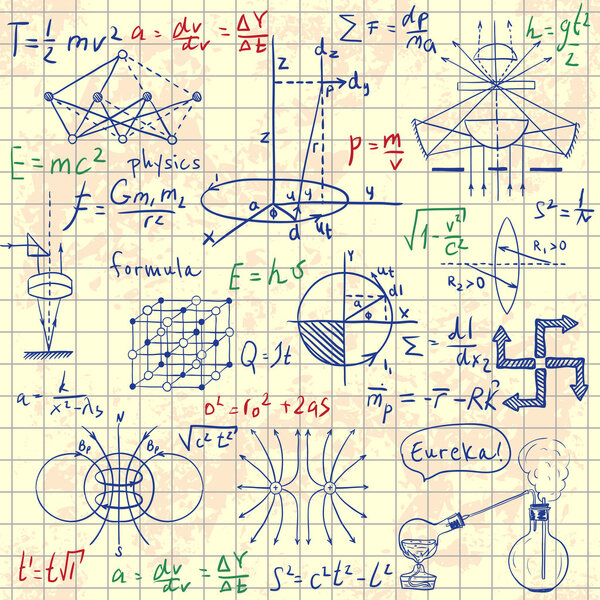 T = 1/2 mv²
a = dv/dv = ΔY/Δt
Σ F = dp/ma
h = gt²/2
z
dz
P
dy
z
r
p = m/v
E = mc²
physics
f = Gm₁m₂/r²
a
u
y
y
ϕ
x
d
ut
S² = 1/N
√1 - v²/c²
R₁>0
R₂>0
formula
E = hυ
Y
ut
dl
a
ϕ
X
Q = It
Σ = dl/dx₂
ṁp = -r̄ - RK̄
υ² = υ₀² + 2as
√c² t²
N
Bp
Bp
S
+
+
Eureka!
t' = t√1
a = dv/dv = ΔY/Δt
S² = c²t² - l²